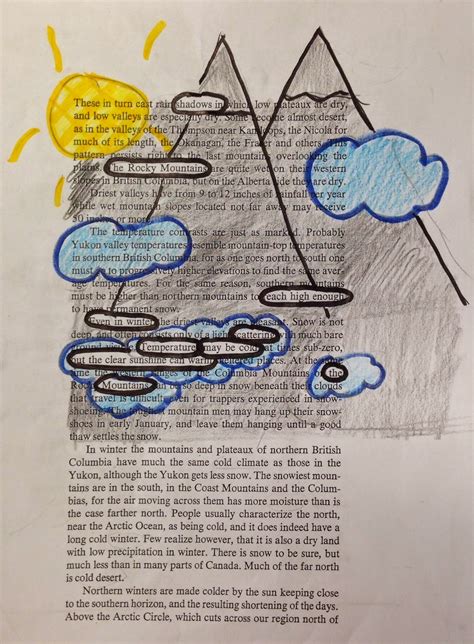 These in turn cast rain shadows in which low plateaux are dry,
and low valleys are especially dry. Some almost desert,
as in the valleys of the Thompson near Kamloops, the Nicola for
much of its length, the Okanagan, the Fraser and others. This
pattern persists right to the last mountains overlooking the
plains. the Rocky Mountain are quite wet on the western
slopes in British Columbia, but on the Alberta side they are dry.
Driest valleys have from 9 to 12 inches of rainfall per year
while wet mountain slopes located not far away may receive
50 inches or more.
The temperature contrasts are just as marked. Probably
Yukon valley temperatures resemble mountain-top temperatures
in southern British Columbia, for as one goes north to south one
must go to progressively higher elevations to find the same aver-
age temperatures. For the same reason, southern mountains
must be higher than northern mountains to each high enough
to have permanent snow.
Even in winter the driest valleys pleasant. Snow is not
deep, and often consists only of a light scattering much bare
Temperature may be cold at times sub-zero,
but the clear sunshine can warm places. At the
time the ranges of the Columbia Mountains the
Rocky Mountains can be so deep in snow beneath their clouds
that travel is difficult even for trappers experienced in snow-
shoeing. The highest mountain men may hang up their snow-
shoes in early January, and leave them hanging until a good
thaw settles the snow.
In winter the mountains and plateaux of northern British
Columbia have much the same cold climate as those in the
Yukon, although the Yukon gets less snow. The snowiest moun-
tains are in the south, in the Coast Mountains and the Colum-
bias, for the air moving across them has more moisture than is
the case farther north. People usually characterize the north,
near the Arctic Ocean, as being cold, and it does indeed have a
long cold winter. Few realize however, that it is also a dry land
with low precipitation in winter. There is snow to be sure, but
much less than in many parts of Canada. Much of the far north
is cold desert.
Northern winters are made colder by the sun keeping close
to the southern horizon, and the resulting shortening of the days.
Above the Arctic Circle, which cuts across our region north of